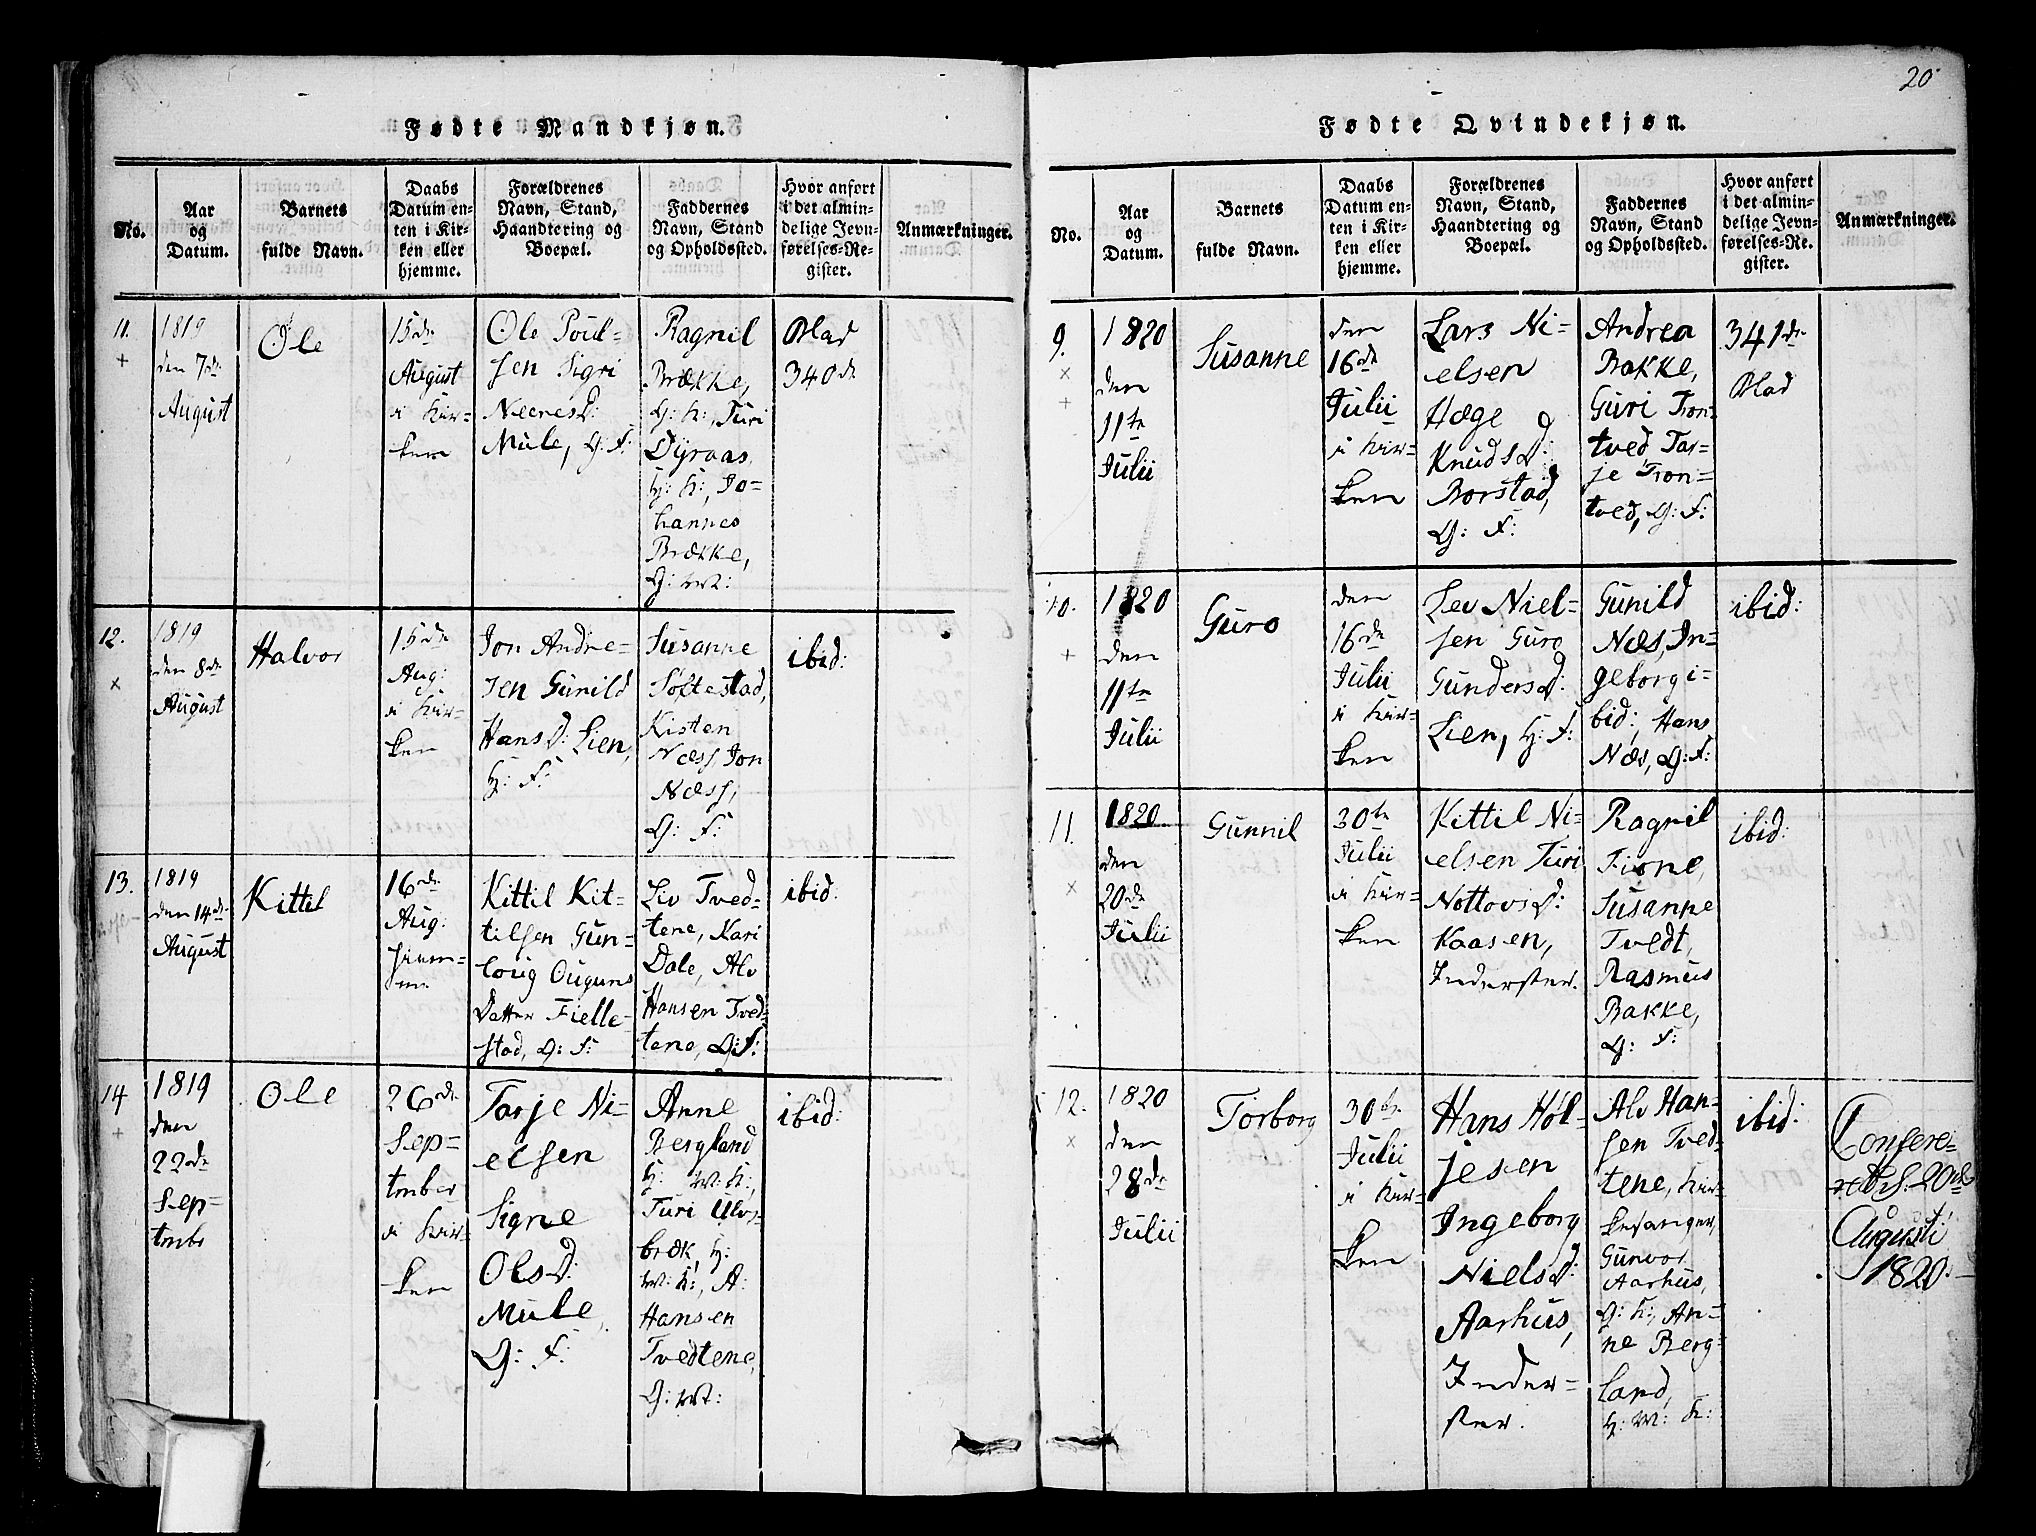 20
Fødte Mandkjøn.
No.
Aar
og
Datum.
Barnets
fulde Navn.
Daabs
Datum en-
ten i Kir-
ken eller
hjemme.
Forældrenes
Navn, Stand,
Haandtering og
Boepæl.
Faddernes
Navn, Stand
og Opholdssted.
Hvor anført
i det almin-
delige Jevn-
førelses-Re-
gister.
Anmærkninger.
11.
+
1819
den 7de
August
Ole
15de
August
i Kir-
ken
Ole Poul-
sen Sigri
NeeresD:
Mule, G: F:
Ragnil
Brække,
G: K:, Turi
Dyraas
H: K:, Jo-
hannes
Brække,
G: M:
Blad
340de
12.
x
1819
den 8de
August
Halvor
15de
Aug:
i Kir-
ken
Jon Andre-
sen Gunild
HansD: Lien,
H: F:
Susanne
Søftestad,
Kisten
Næss, Jon
Næss,
G: F:
ibid:
13.
1819
den 14de
August
Kittil
16de
Aug:
hjem-
me
Kittil Kit-
tilsen Gun-
loug Ouguns
Datter Fielle-
stad, G: F:
Liv Tved-
tene, Kari
Dale, Alv
Hansen Tved-
tene, G: F:
ibid:
14
+
1819
den
22de
Sep-
tmbr
Ole
26de
Sep-
tmber
i Kir-
ken
Tarje Ni-
elsen
Signe
OlsD:
Mule,
G: F:
Anne
Bergland
H: M: K:,
Turi Ulvs-
bræk, H:
M: K:, A:
Hansen
Tvedtene,
G: M:
ibid:
Fødte Qvindekjøn.
No.
Aar
og
Datum.
Barnets
fulde Navn.
Daabs
Datum en-
ten i Kir-
ken eller
hjemme.
Forældrenes
Navn, Stand,
Haandtering og
Boepæl.
Faddernes
Navn, Stand
og Opholdssted.
Hvor anført
i det almin-
delige Jevn-
førelses-Re-
gister.
Anmærkninger.
9.
x
+
1820
den
11te
Julii
Susanne
den
16de
Julii
i Kir-
ken
Lars Ni-
elsen
Hæge
KnudsD:
Borstad,
G: F:
Andrea
Bakke,
Guri Tron-
tved Tar-
je Tron-
tved, G: F:
341de
Blad
10.
+
1820
den
11te
Julii
Guro
den
16de
Julii
i Kir-
ken
Lev Niel-
sen Guro
GundersD:
Lien, H: F:
Gunild
Næs, In-
geborg i-
bid:, Hans
Næs, G: F:
ibid:
11.
x
1820
den
20de
Julii
Gunnil
30te
Julii
i Kir-
ken
Kittil Ni-
elsen Turi
NottovsD:
Kaasen,
Inderster.
Ragnil
Fione,
Susanne
Tvedt,
Rasmus
Bakke,
G: F:
ibid:
12.
x
1820
den
28de
Julii
Torborg
30te
Julii
i Kir-
ken
Hans Høl-
jesen
Ingeborg
NielsD:
Aarhus,
Inder-
ster.
Alv Han-
sen Tved-
tene, Kir-
kesanger,
Gunvor
Aarhus,
G: K:, An-
ne Berg-
land,
H: M: K:
ibid:
Confere-
20de
Augusti
1820.